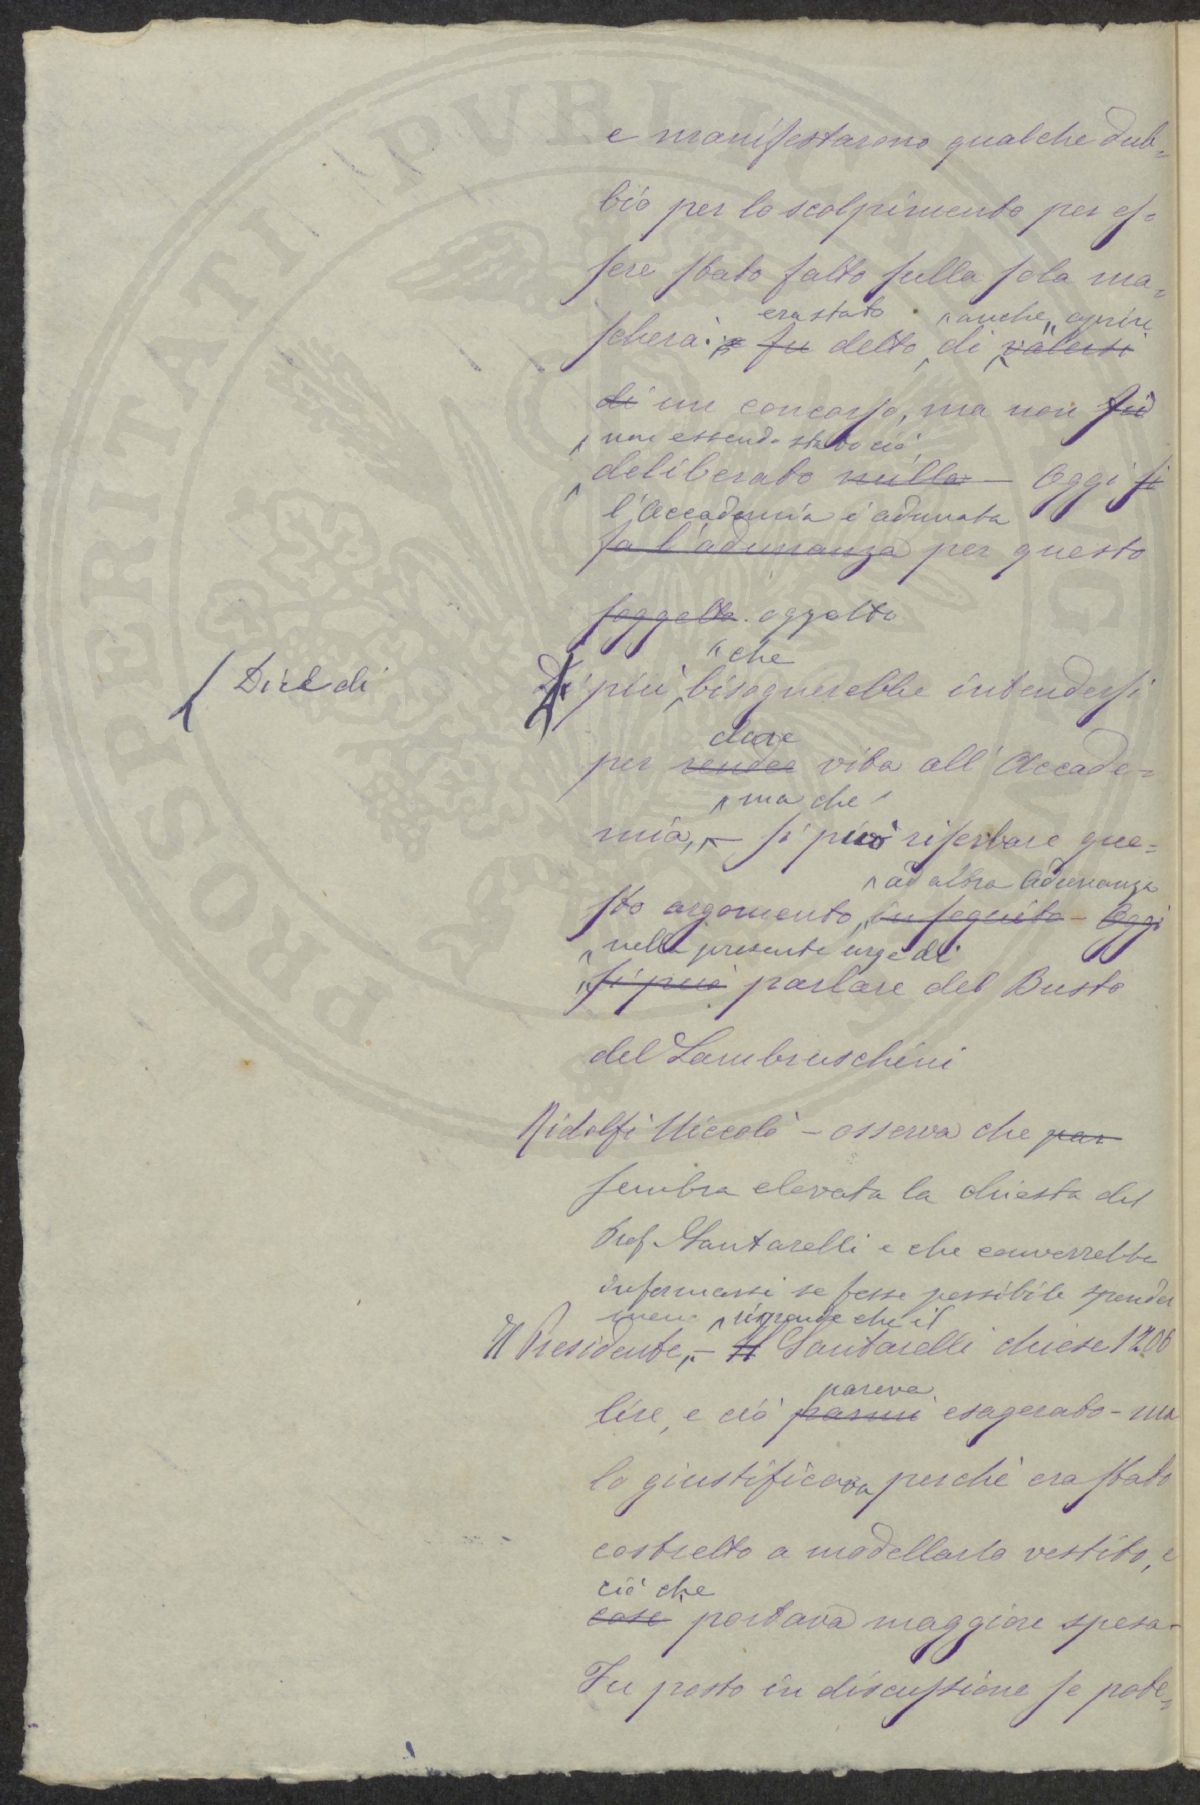 PROSPERITATI PVBLICAE
e manifestarono qualche dub=
bio per lo scolpimento per es=
sere stato fatto sulla sola ma=
era stato anche aprire
schera: fu detto di valersi
di un concorso, ma non fu
non essendo stato ciò
deliberato nulla — Oggi si
l'Accademia è adunata
fa l'adunanza per questo
soggetto. oggetto
che
Dice di
Di più bisognerebbe intendersi
dare
per render vita all'Accade=
ma che
mia, — si può riserbare que=
ad altra Adunanza
sto argomento, in seguito — Oggi
nella presente urge di
si può parlare del Busto
del Lambruschini
Ridolfi Niccolò — osserva che par
sembra elevata la chiesta del
Prof. Santarelli e che converrebbe
informarsi se fosse possibile spender
meno risponde che il
Il Presidente, — Il Santarelli chiese 1200
pareva
lire, e ciò parmi esagerato — ma
lo giustificava perchè era stato
costretto a modellarlo vestito, e
ciò che
cose portava maggiore spesa —
Fu posto in discussione se pote=